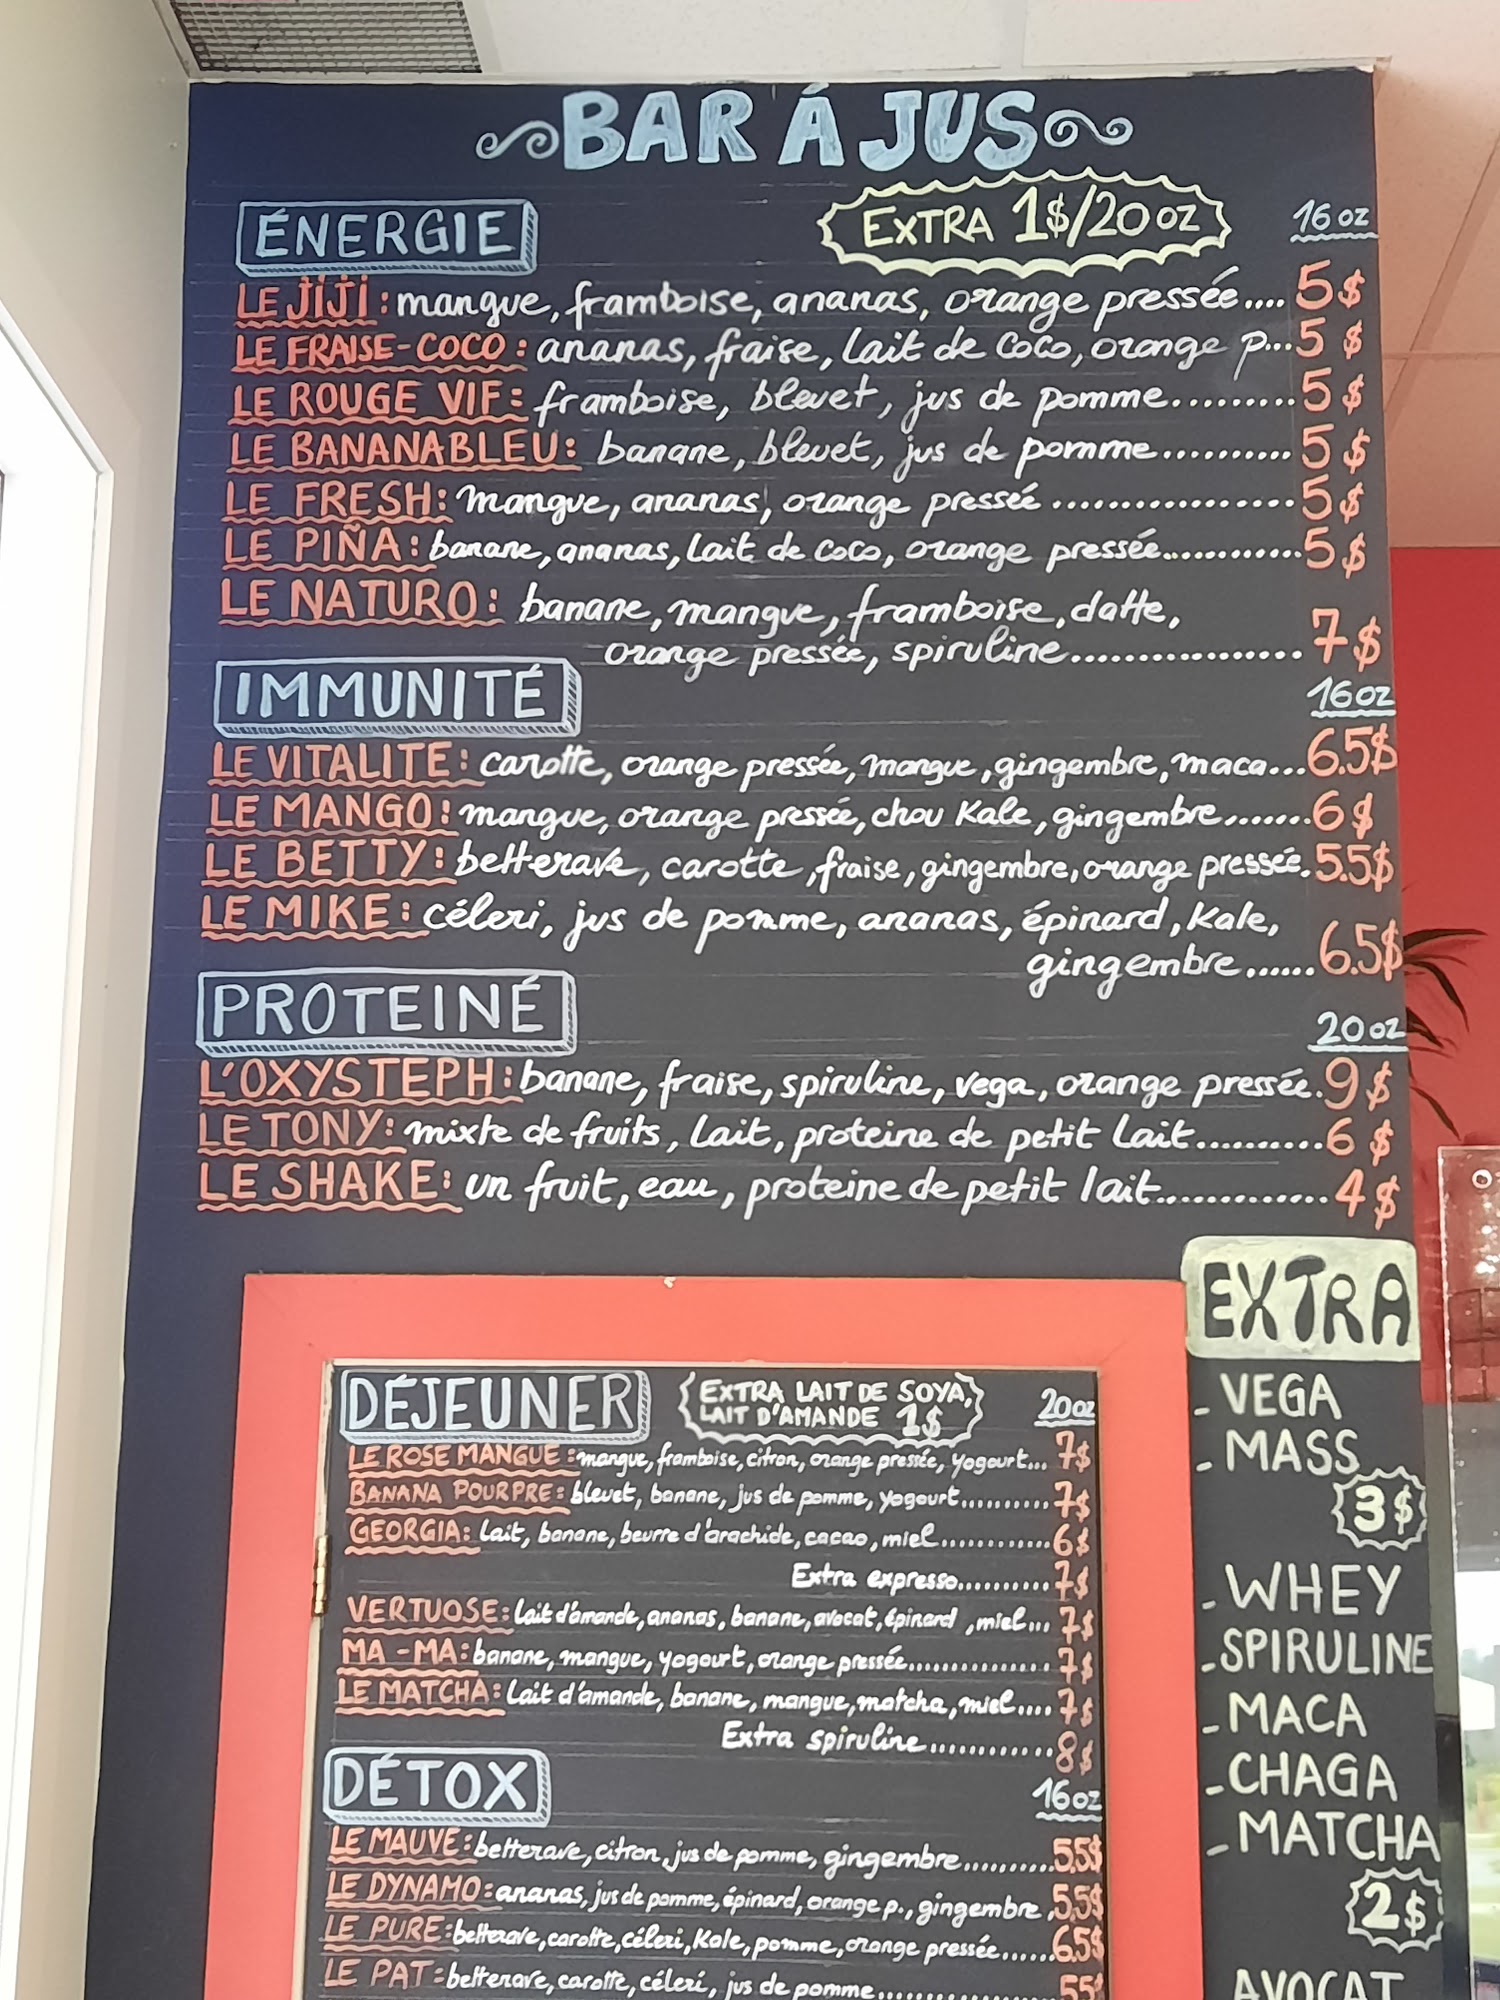 BAR À JUS
ÉNERGIE
EXTRA 1$/20 oz
16 oz
LE JIJI : mangue, framboise, ananas, orange pressée.... 5$
LE FRAISE-COCO : ananas, fraise, lait de coco, orange p... 5$
LE ROUGE VIF : framboise, bleuet, jus de pomme.......... 5$
LE BANANABLEU : banane, bleuet, jus de pomme........... 5$
LE FRESH : mangue, ananas, orange pressée .................. 5$
LE PIÑA : banane, ananas, lait de coco, orange pressée............. 5$
LE NATURO : banane, mangue, framboise, datte,
orange pressée, spiruline.................. 7$
IMMUNITÉ
16 oz
LE VITALITE : carotte, orange pressée, mangue, gingembre, maca... 6.5$
LE MANGO : mangue, orange pressée, chou Kale, gingembre....... 6$
LE BETTY : betterave, carotte, fraise, gingembre, orange pressée. 5.5$
LE MIKE : céleri, jus de pomme, ananas, épinard, Kale,
gingembre...... 6.5$
PROTEINÉ
20 oz
L'OXYSTEPH : banane, fraise, spiruline, vega, orange pressée. 9$
LE TONY : mixte de fruits, lait, proteine de petit lait.......... 6$
LE SHAKE : un fruit, eau, proteine de petit lait............. 4$
EXTRA
- VEGA
- MASS
3$
- WHEY
- SPIRULINE
- MACA
- CHAGA
- MATCHA
2$
AVOCAT
DÉJEUNER
EXTRA LAIT DE SOYA,
LAIT D'AMANDE 1$
20 oz
LE ROSE MANGUE : mangue, framboise, citron, orange pressée, yogourt... 7$
BANANA POURPRE : bleuet, banane, jus de pomme, yogourt.......... 7$
GEORGIA : lait, banane, beurre d'arachide, cacao, miel............ 6$
Extra expresso.......... 7$
VERTUOSE : lait d'amande, ananas, banane, avocat, épinard, miel... 7$
MA-MA : banane, mangue, yogourt, orange pressée............... 7$
LE MATCHA : lait d'amande, banane, mangue, matcha, miel.... 7$
Extra spiruline............ 8$
DÉTOX
16 oz
LE MAUVE : betterave, citron, jus de pomme, gingembre.......... 5.5$
LE DYNAMO : ananas, jus de pomme, épinard, orange p., gingembre, 5.5$
LE PURE : betterave, carotte, céleri, Kale, pomme, orange pressée...... 6.5$
LE PAT : betterave, carotte, céleri, jus de pomme................. 55$